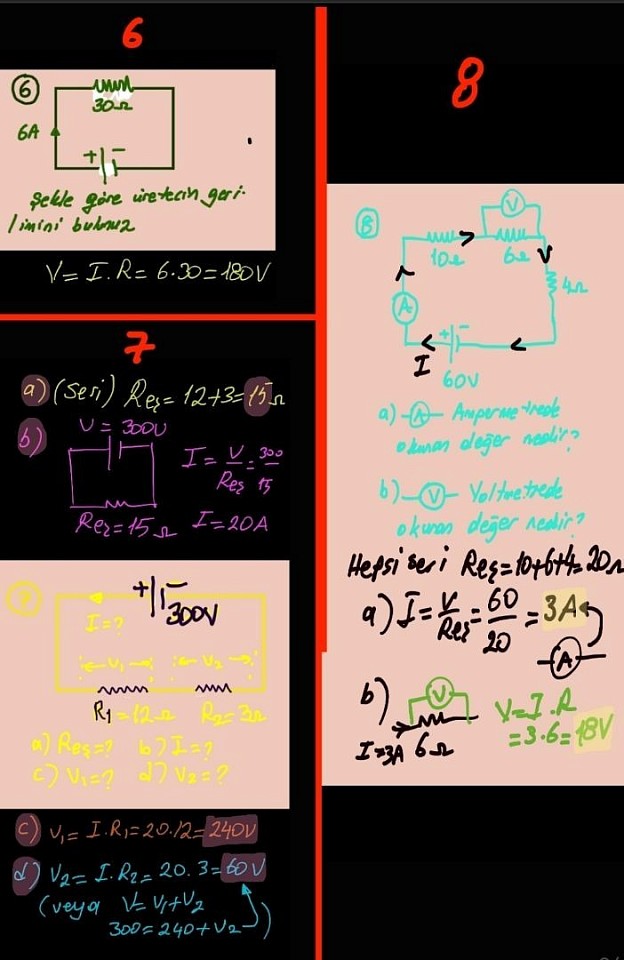 6
6
30Ω
6A
+ -
Şekle göre üretecin geri-
limini bulunuz
V = I.R = 6.30 = 180V
7
a) (Seri) Reş = 12+3 = 15Ω
b)
V = 300V
I = V/Reş = 300/15
Reş = 15Ω I = 20A
7
+ -
300V
I = ?
V₁ V₂
R₁ = 12Ω R₂ = 3Ω
a) Reş = ? b) I = ?
c) V₁ = ? d) V₂ = ?
c) V₁ = I.R₁ = 20.12 = 240V
d) V₂ = I.R₂ = 20.3 = 60V
(veya V = V₁+V₂
300 = 240 + V₂)
8
8
V
10Ω 6Ω
4Ω
A
+ -
I
60V
a) A Ampermetrede
okunan değer nedir?
b) V Voltmetrede
okunan değer nedir?
Hepsi seri Reş = 10+6+4 = 20Ω
a) I = V/Reş = 60/20 = 3A
A
b) V
I = 3A 6Ω
V = I.R
= 3.6 = 18V